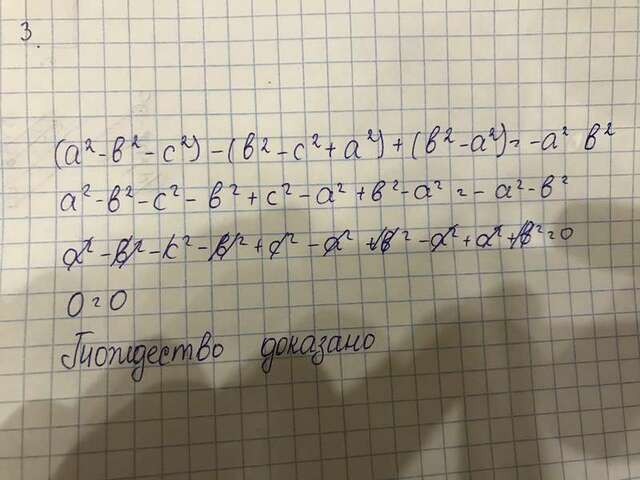 3.
(a² - в² - c²) - (в² - c² + a²) + (в² - a²) = -a² - в²
a² - в² - c² - в² + c² - a² + в² - a² = - a² - в²
a² - в² - c² - в² + c² - a² + в² - a² + a² + в² = 0
0 = 0
Тождество доказано